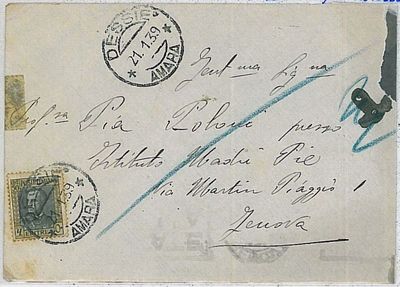 DESSIE'
21.1.39
AMARA
Gent.ma Sig.na
Prof.ssa Pia Poloni presso
Istituto Madri Pie
Via Martin Piaggio 1
Genova
AMARA